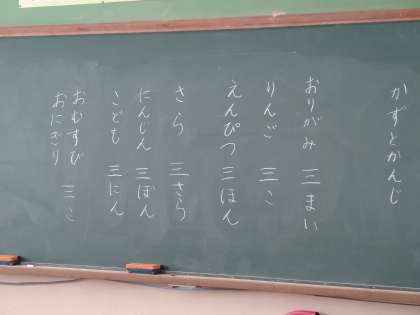 かずとかんじ
おりがみ 三まい
りんご 三こ
えんぴつ 三ほん
さら 三さら
にんじん 三ぼん
こども 三にん
おむすび
おにぎり 三こ